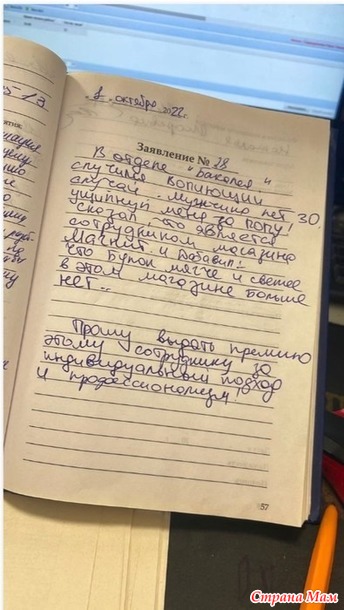 8 октября 2022г.
Заявление № 28
В отделе "Бакалея"
случился вопиющий
случай. Мужчина лет 30
ущипнул меня за попу!
Сказал что является
сотрудником магазина
Магнит и добавил:
что булок мягче и свежее
в этом магазине больше
нет..
Прошу выдать премию
этому сотруднику за
индивидуальный подход
и профессионализм!
57
Страна Мам